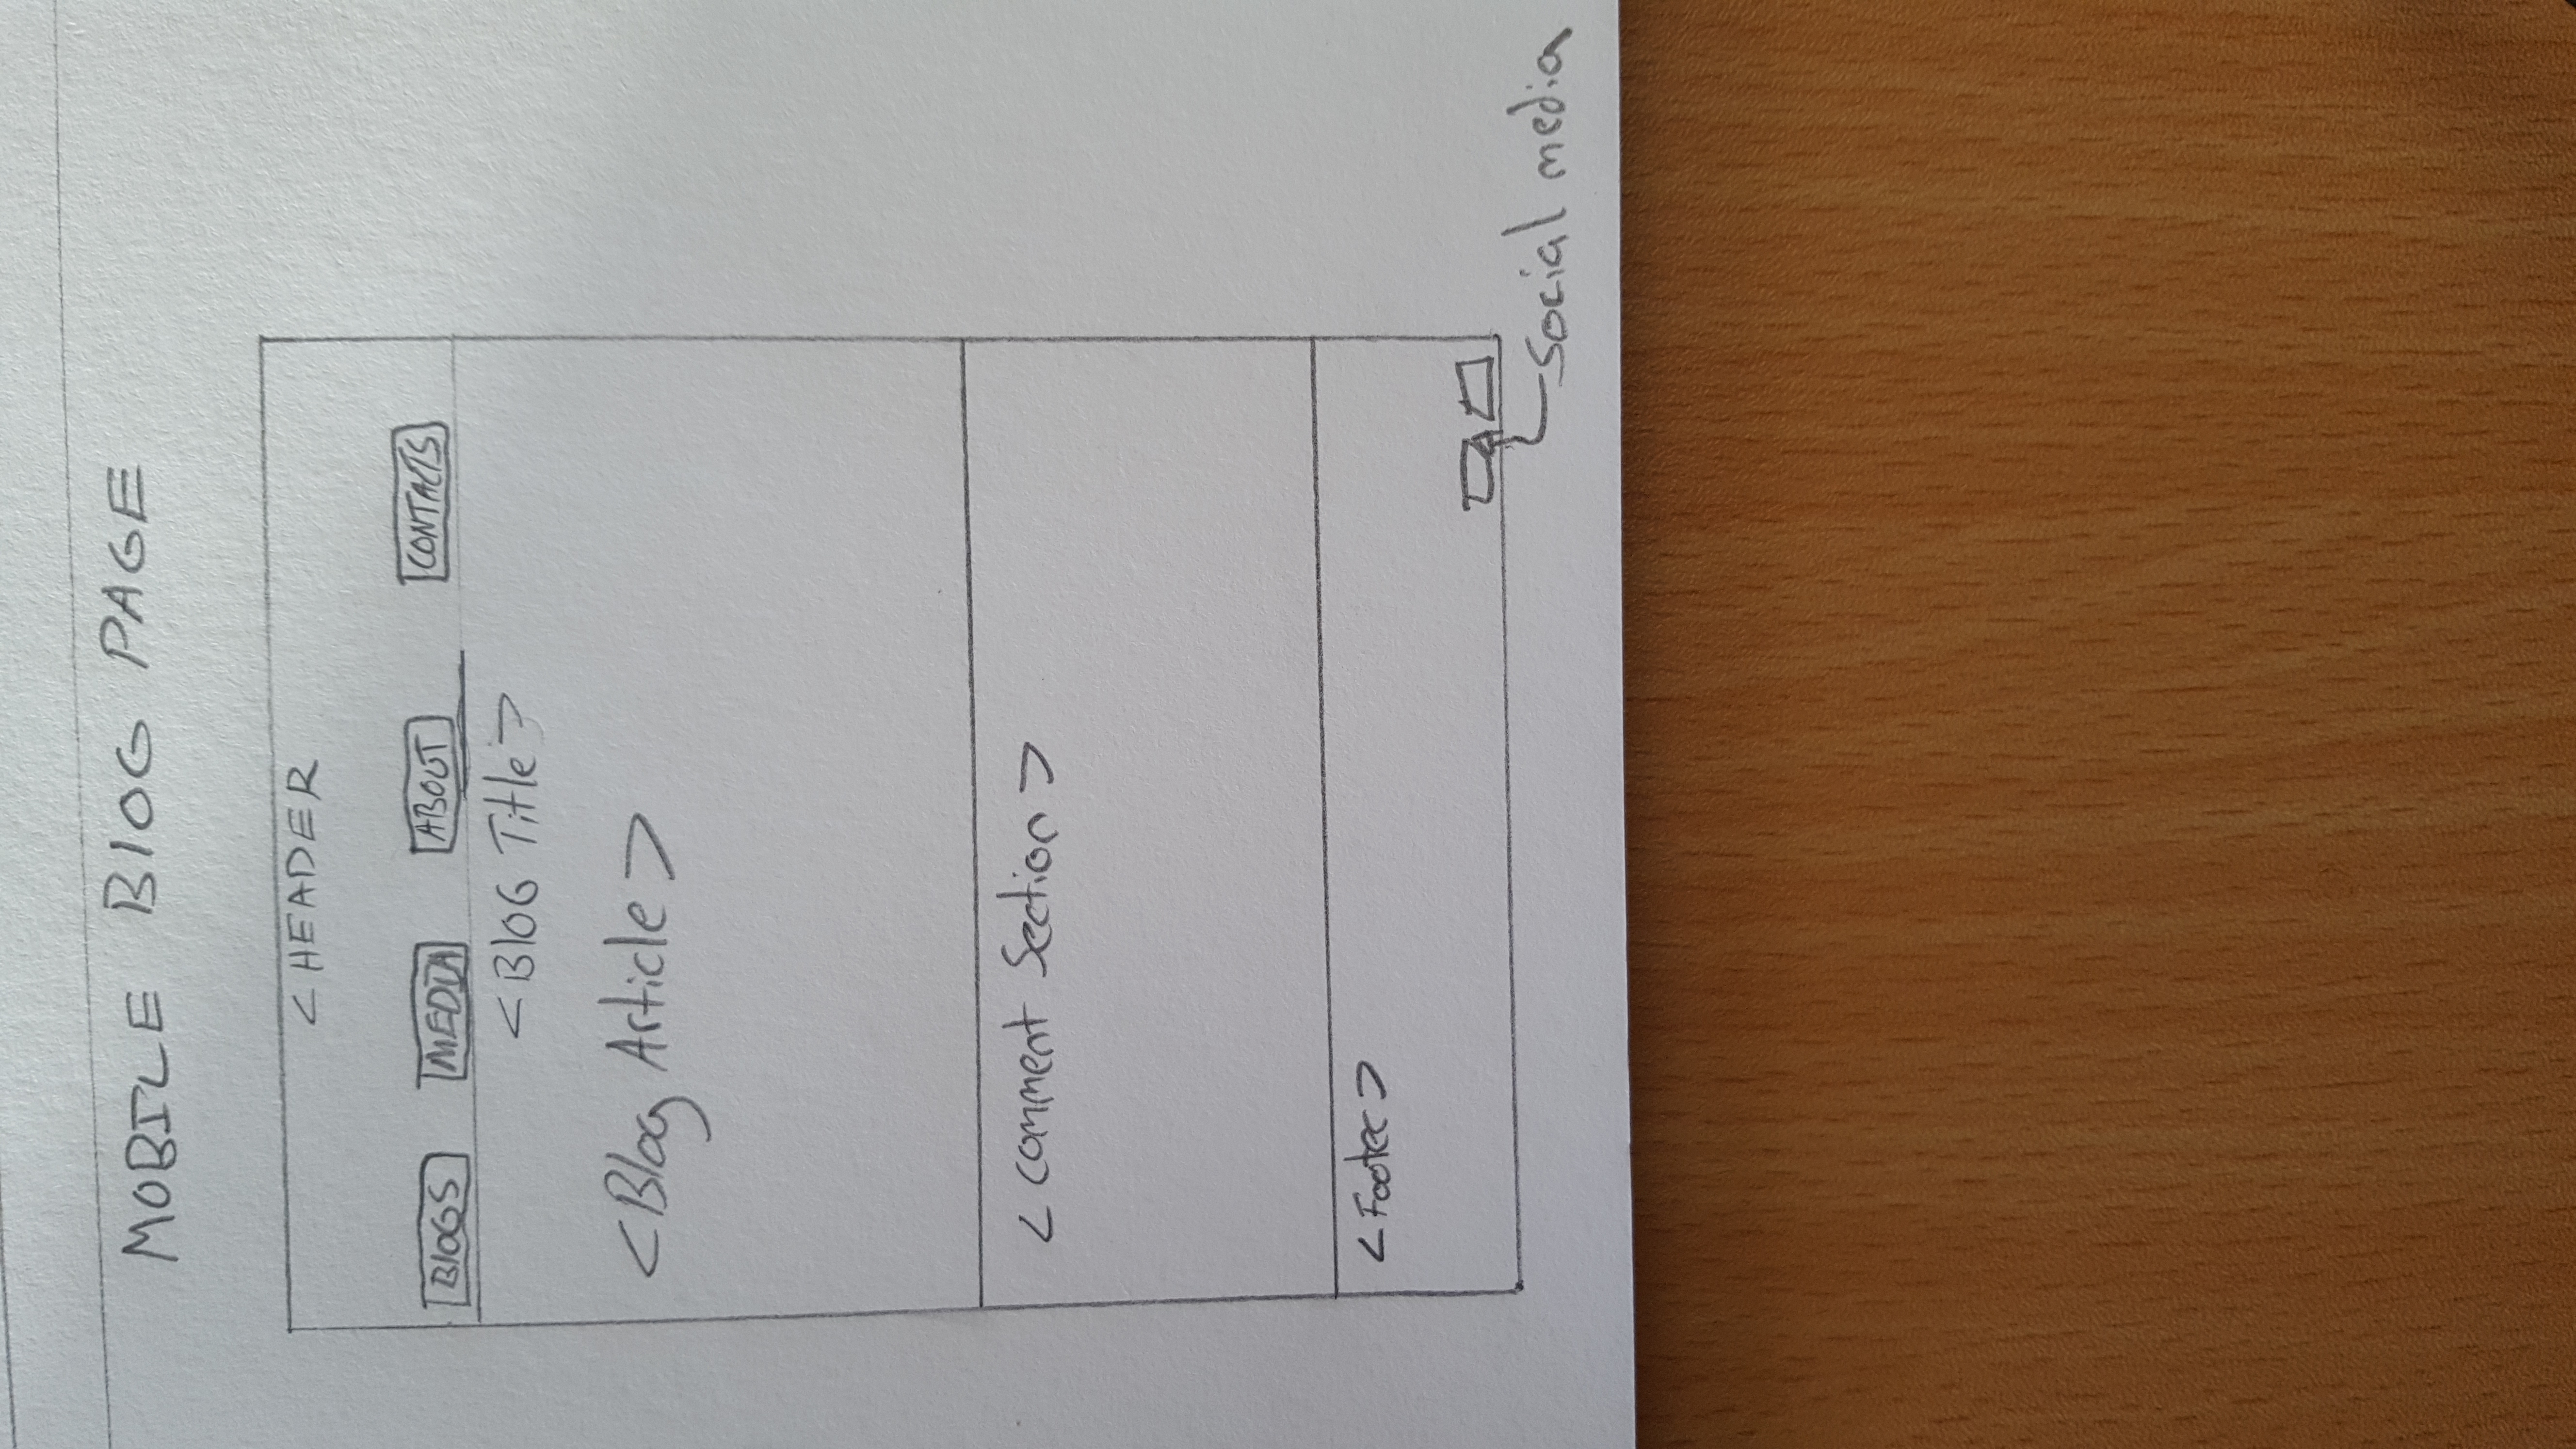 MOBILE BLOG PAGE
< HEADER
BLOGS MEDIA ABOUT CONTACTS
<BLOG Title>
<Blog Article>
< Comment Section >
<Footer>
Social media